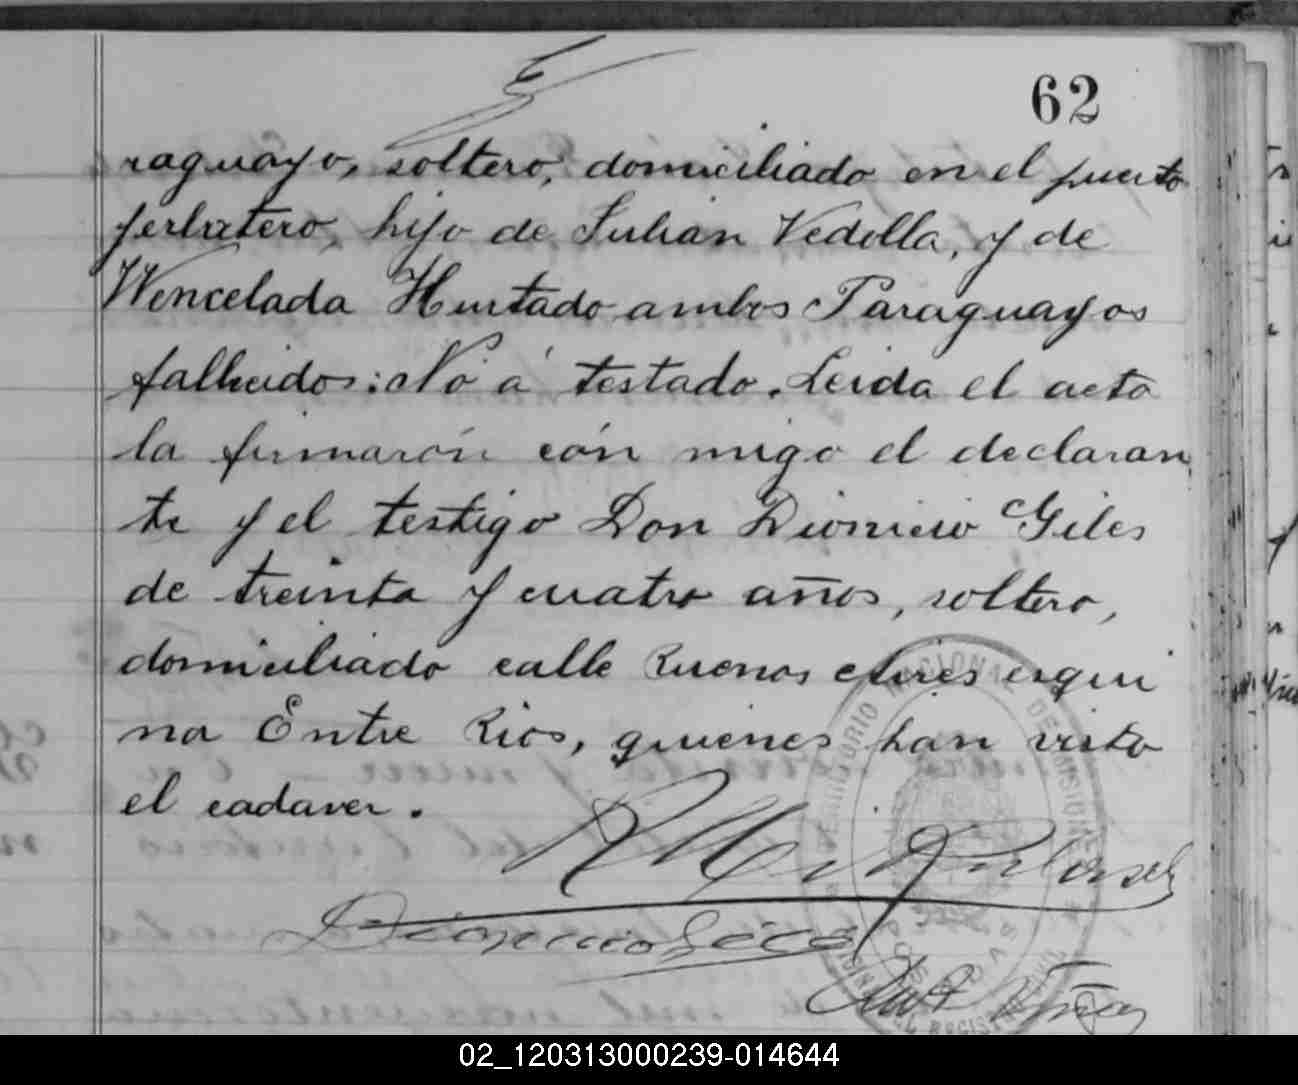 62
raguayo, soltero, domiciliado en el puerto
yerbatero, hijo de Julian Vedolla, y de
Wencelada Hurtado ambos Paraguayos
fallecidos: No á testado. Leida el acta
la firmarón cón migo el declaran
te y el testigo Don Dionicio Giles
de treinta y cuatro años, soltero,
domiciliado calle Buenos Aires esqui
na Entre Rios, quienes han visto
el cadaver.
Dionicio Giles
TERRITORIO NACIONAL DE MISIONES
POSADAS
02_120313000239-014644